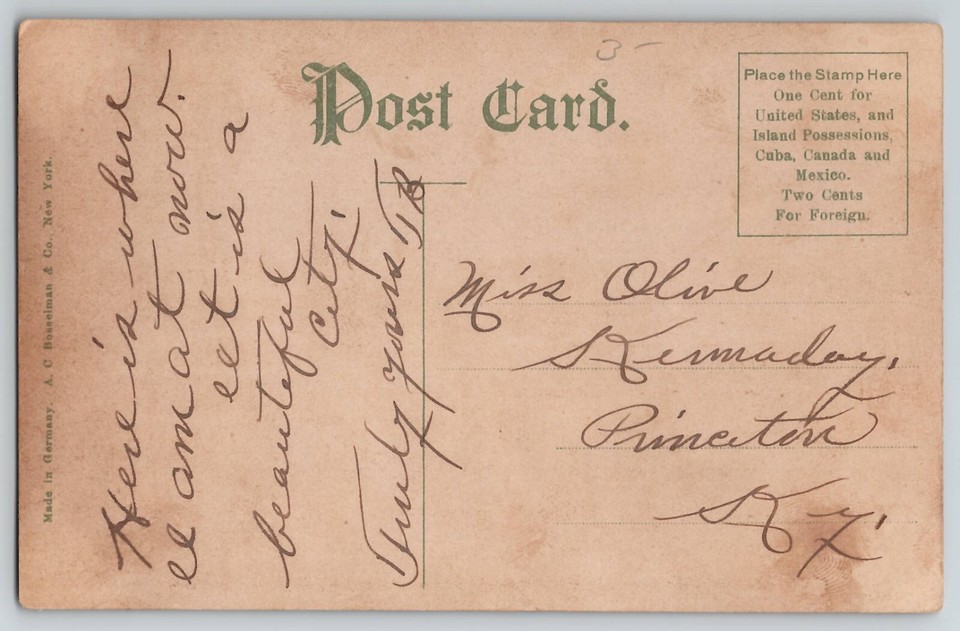 Post Card.
3-
Place the Stamp Here
One Cent for
United States, and
Island Possessions,
Cuba, Canada and
Mexico.
Two Cents
For Foreign.
Made in Germany. A. C Bosselman & Co., New York.
Here is where
I am at now.
It is a
beautiful
city.
Truly yours
Miss Olive
Kennaday,
Princeton
Ky.